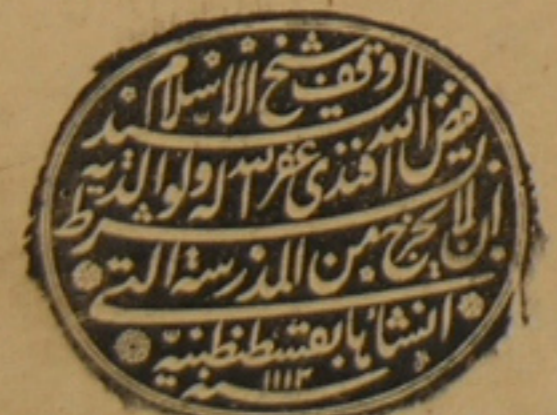 وقف شيخ الاسلام السيد
فيض الله افندى غفر الله له ولوالديه
بشرط ان لا يخرج من المدرسة التي
انشاها بقسطنطنية
سنة ١١١٢